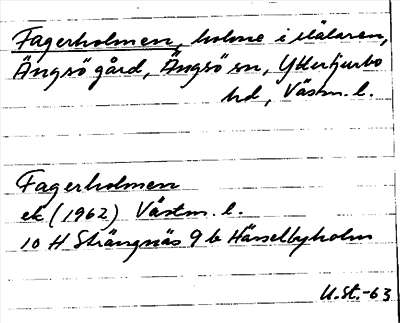 Fagerholmen, holme i Mälaren,
Ängsö gård, Ängsö sn, Yttertjurbo
hd, Västm. l.
Fagerholmen
ek (1962) Västm. l.
10 H Strängnäs 9 b Hässelbyholm
U.St.-63